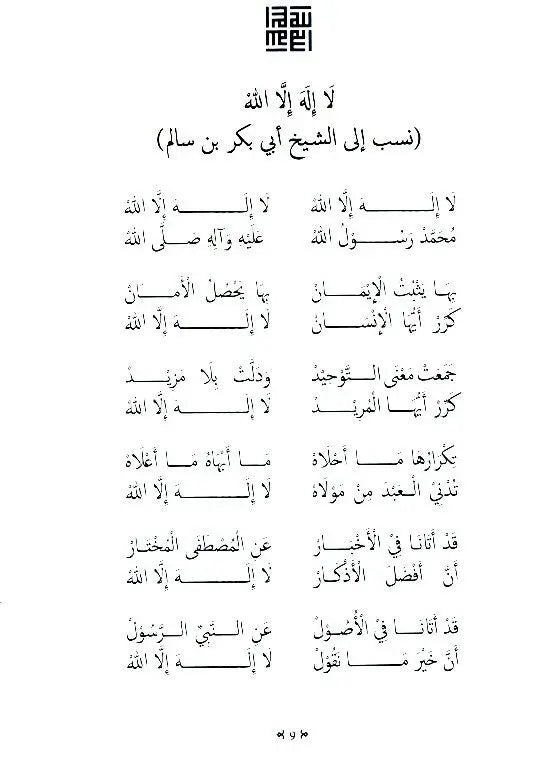 لَا إِلَهَ إِلَّا اللهْ
(نسب إلى الشيخ أبي بكر بن سالم)
لَا إِلَــــــــهَ إِلَّا اللهْ لَا إِلَــــــــهَ إِلَّا اللهْ
مُحَمَّدْ رَسُـــــوْلُ اللهْ عَلَيْهِ وَآلِهِ صَـلَّى اللهْ
بِهَـا يَثْبُتْ الْإِيْمَـــانْ بِهَا يَحْصُلْ الْأَمَــانْ
كَرِّرْ أَيُّهَا الْإِنْسَـــانْ لَا إِلَــــــــهَ إِلَّا اللهْ
جَمَعَتْ مَعْنَى الـتَّوْحِيْدْ وَدَلَّتْ بِلَا مَزِيْـــدْ
كَرِّرْ أَيُّهَــا الْمُرِيْـــدْ لَا إِلَــــــــهَ إِلَّا اللهْ
تِكْرَارُهَا مَـــا أَحْلَاهْ مَــا أَبْهَاهْ مَــا أَعْلَاهْ
تُدْنِيْ الْـعَبْدَ مِنْ مَوْلَاهْ لَا إِلَــــــــهَ إِلَّا اللهْ
قَدْ أَتَانَـا فِيْ الْأَخْبَـــارْ عَنِ الْمُصْطَفَى الْمُخْتَـارْ
أَنَّ أَفْضَلَ الْأَذْكَـارْ لَا إِلَــــــــهَ إِلَّا اللهْ
قَدْ أَتَانَـــا فِيْ الْأُصُوْلْ عَنِ الـــنَّبِيِّ الـــرَّسُوْلْ
أَنَّ خَيْرَ مَــــا نَقُوْلْ لَا إِلَــــــــهَ إِلَّا اللهْ
٩